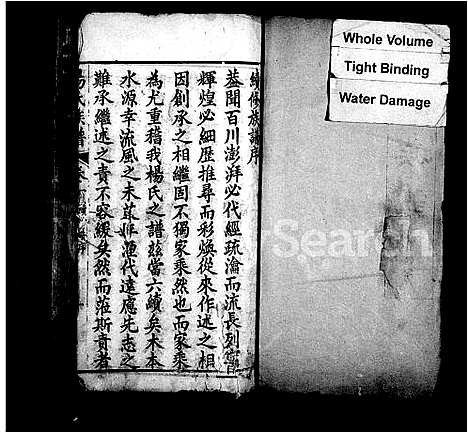 Whole Volume
Tight Binding
Water Damage
續修族譜序
蓋聞百川澎湃必代經疏瀹而流長列宿
輝煌必細歷推尋而彩煥從來作述之相
因創承之相繼固不獨家乘然也而家乘
為尤重稽我楊氏之譜玆當六續矣木本
水源幸流風之未艾年湮代遠應先志之
難承繼述之責不容緩矣然而蒞斯責者
楊氏族譜
Search